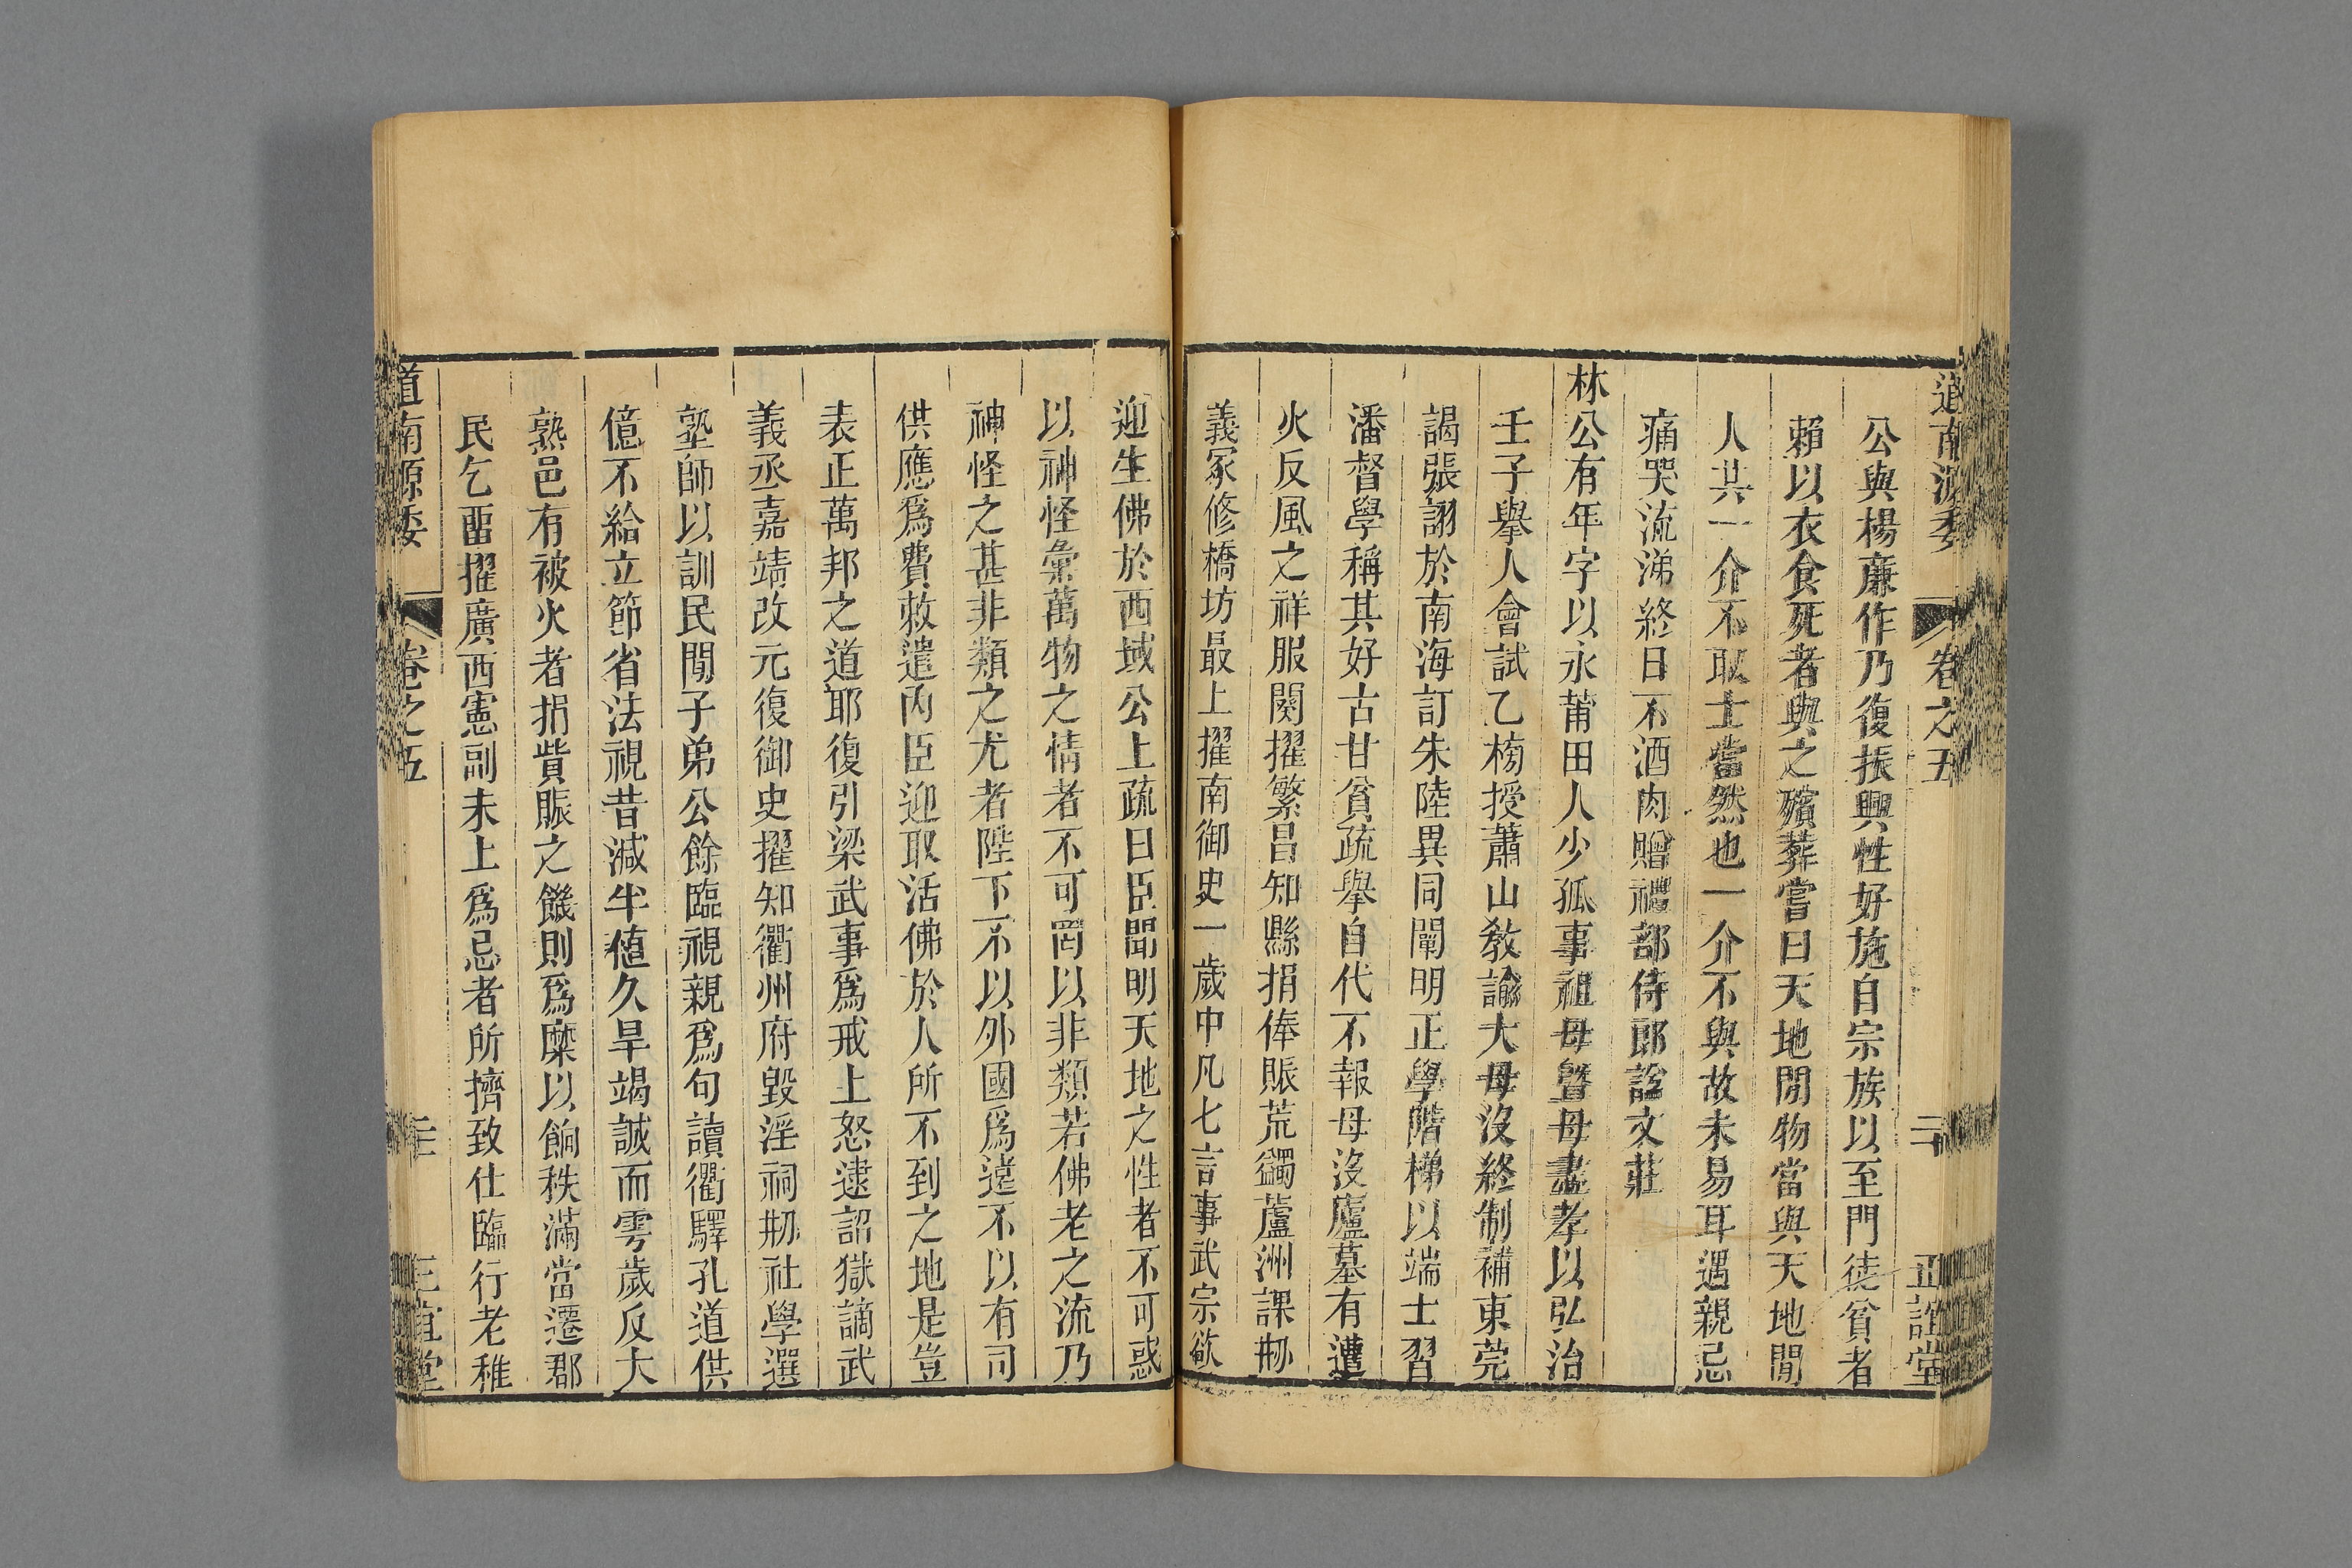 道南源委 卷之五 二十 正誼堂
公與楊廉作乃復振興性好施自宗族以至門徒貧者
賴以衣食死者與之殯葬嘗曰天地閒物當與天地閒
人共一介不取士當然也一介不與故未易耳遇親忌
痛哭流涕終日不酒肉贈禮部侍郎諡文莊
林公有年字以永莆田人少孤事祖母曁母盡孝以弘治
壬子擧人會試乙榜授蕭山敎諭大母沒終制補東莞
謁張詡於南海訂朱陸異同闡明正學階梯以端士習
潘督學稱其好古甘貧疏擧自代不報母沒廬墓有遭
火反風之祥服闋擢繁昌知縣捐俸賑荒蠲蘆洲課刱
義冢修橋坊最上擢南御史一歲中凡七言事武宗欲
迎生佛於西域公上疏曰臣聞明天地之性者不可惑
以神怪彙萬物之情者不可罔以非類若佛老之流乃
神怪之甚非類之尤者陛下不以外國爲遠不以有司
供應爲費敕遣內臣迎取活佛於人所不到之地是豈
表正萬邦之道耶復引梁武事爲戒上怒逮詔獄謫武
義丞嘉靖改元復御史擢知衢州府毀淫祠刱社學選
塾師以訓民閒子弟公餘臨視親爲句讀衢驛孔道供
億不給立節省法視昔減半值久旱竭誠而雩歲反大
熟邑有被火者捐貲賑之饑則爲糜以餉秩滿當遷郡
民乞畱擢廣西憲副未上爲忌者所擠致仕臨行老稚
道南源委 卷之五